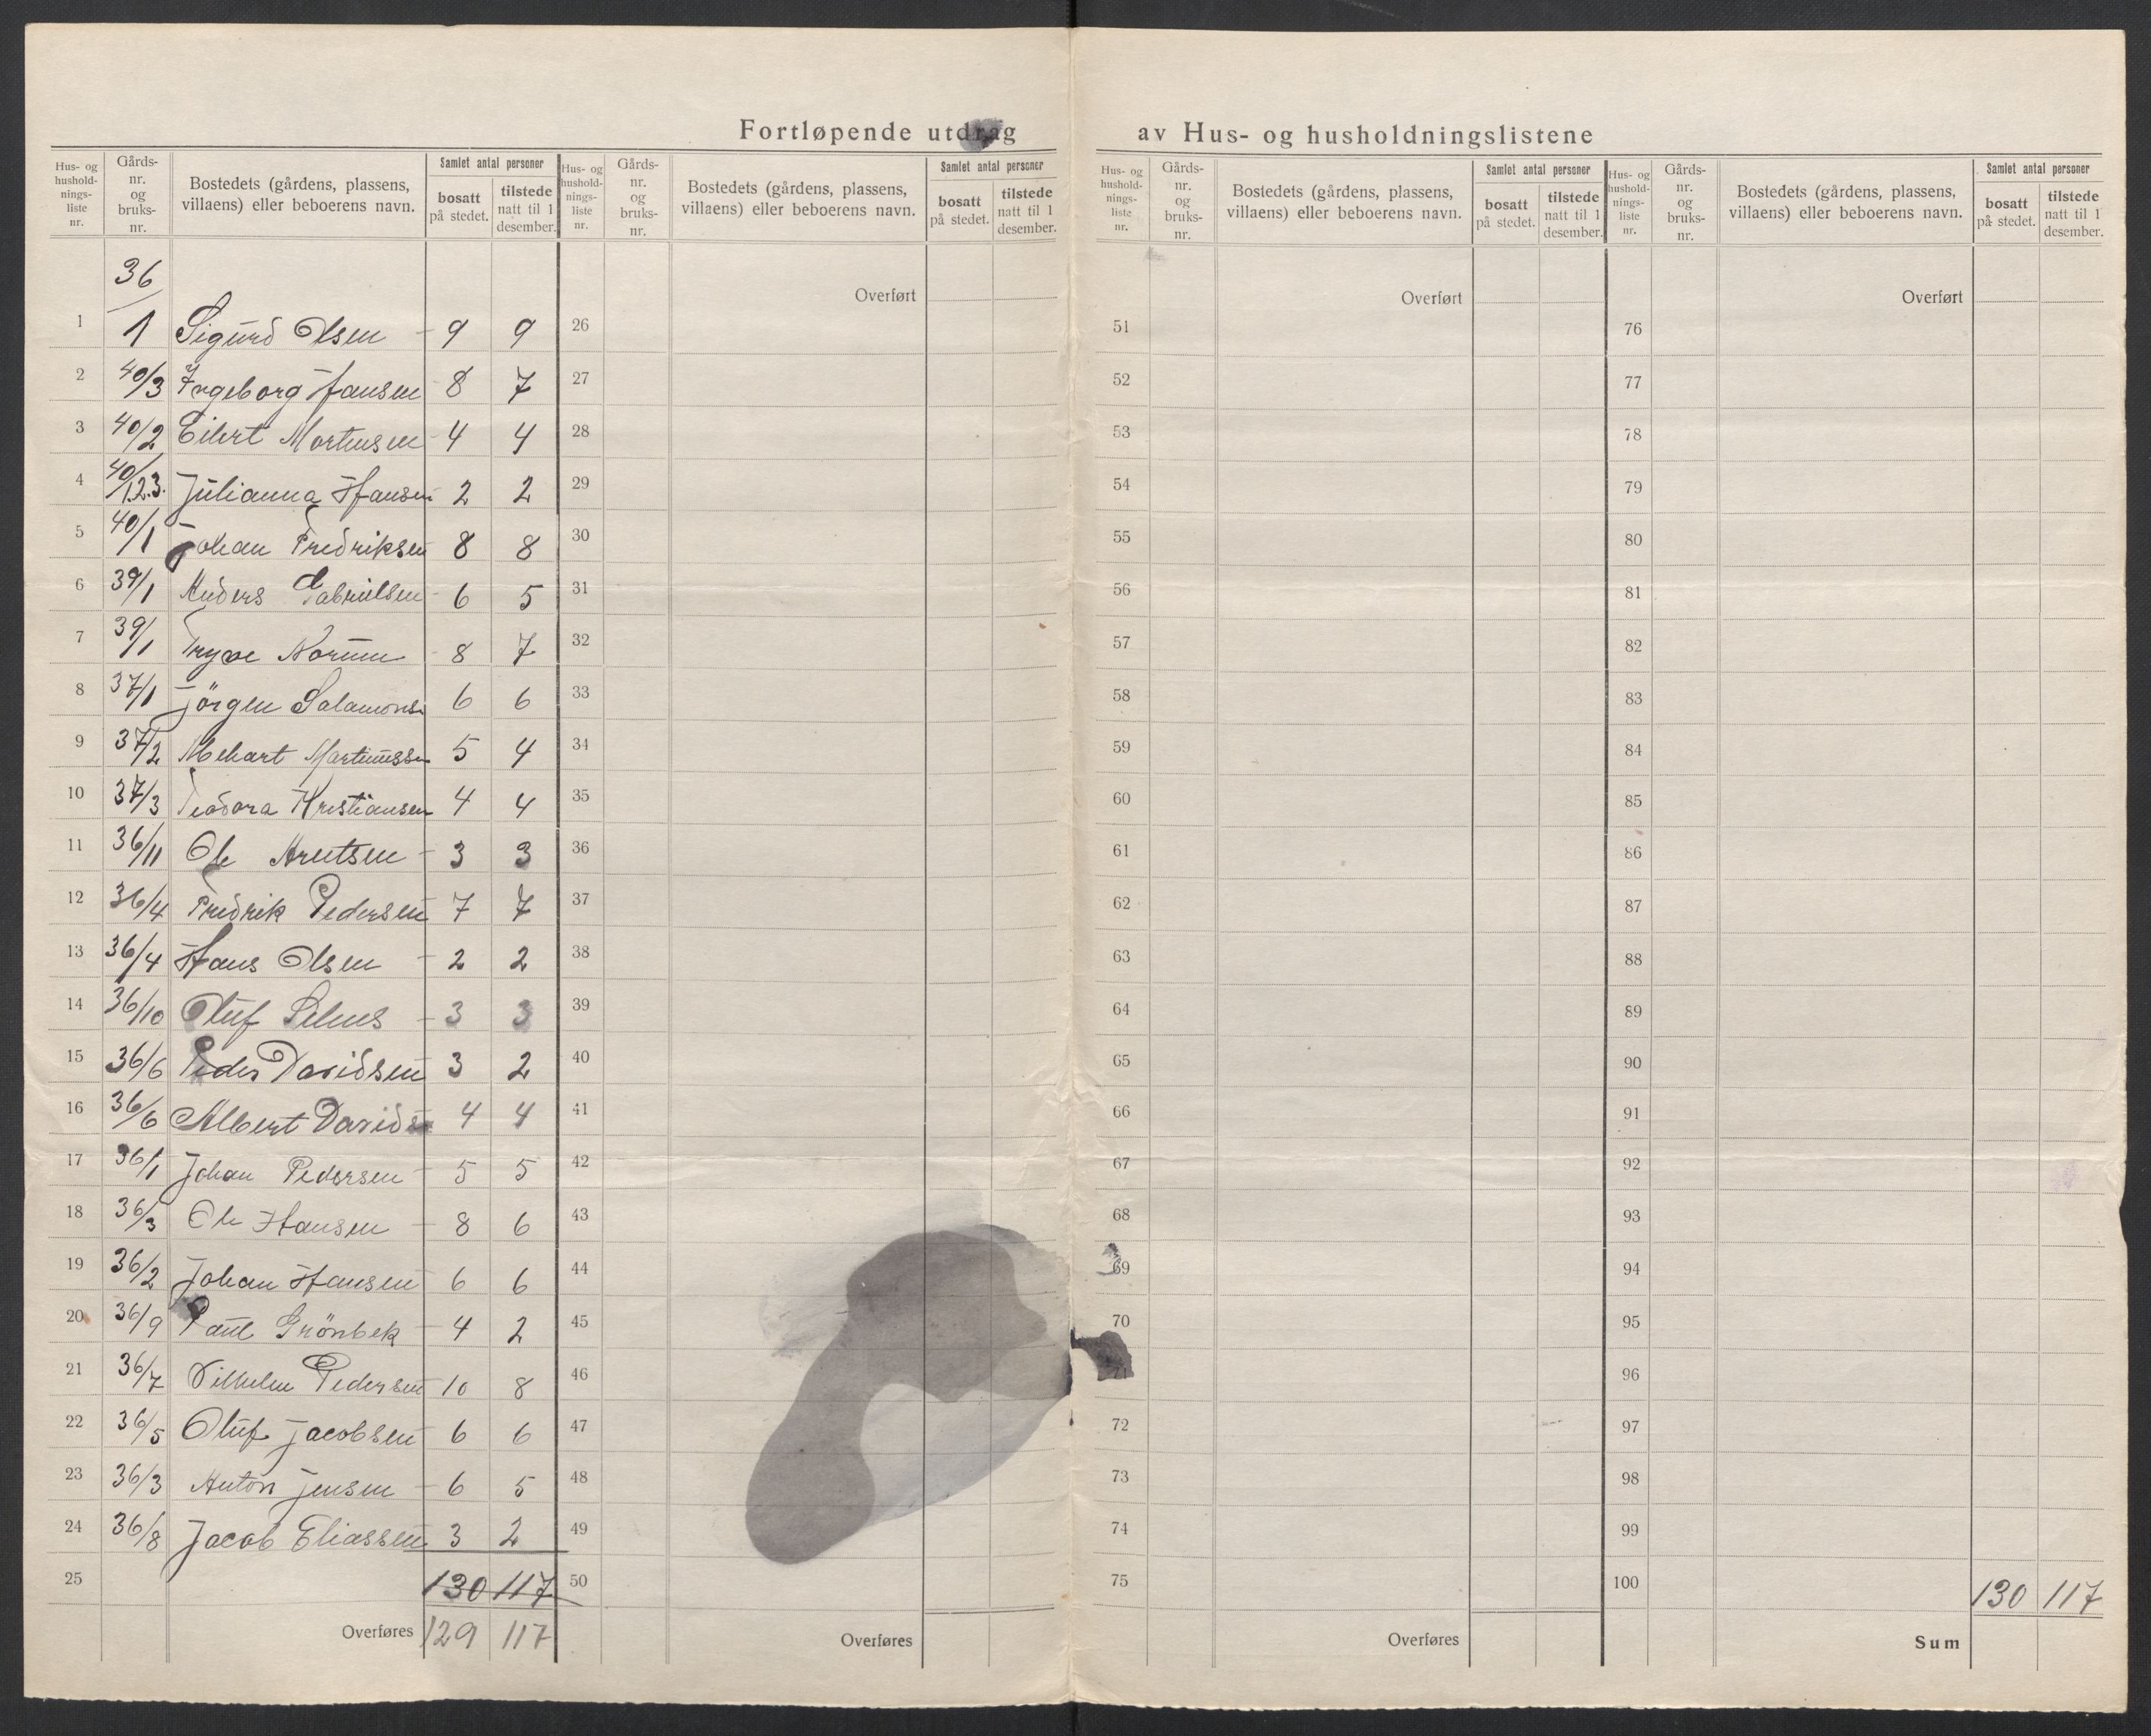 Fortløpende utdrag av Hus- og husholdningslistene
Hus- og husholdnings-liste nr. Gårds-nr. og bruks-nr. Bostedets (gårdens, plassens, villaens) eller beboerens navn. Samlet antal personer bosatt på stedet. tilstede natt til 1 desember.
Hus- og husholdnings-liste nr. Gårds-nr. og bruks-nr. Bostedets (gårdens, plassens, villaens) eller beboerens navn. Samlet antal personer bosatt på stedet. tilstede natt til 1 desember.
Hus- og husholdnings-liste nr. Gårds-nr. og bruks-nr. Bostedets (gårdens, plassens, villaens) eller beboerens navn. Samlet antal personer bosatt på stedet. tilstede natt til 1 desember.
Hus- og husholdnings-liste nr. Gårds-nr. og bruks-nr. Bostedets (gårdens, plassens, villaens) eller beboerens navn. Samlet antal personer bosatt på stedet. tilstede natt til 1 desember.
Overført Overført Overført
1 36/1 Sigurd Olsen - 9 9 26 51 76
2 40/3 Ingeborg Hansen 8 7 27 52 77
3 40/2 Eilert Mortensen 4 4 28 53 78
4 40/1.2.3. Julianna Hansen 2 2 29 54 79
5 40/1 Johan Fredriksen 8 8 30 55 80
6 39/1 Anders Gabrielsen 6 5 31 56 81
7 39/1 Tryve Norum - 8 7 32 57 82
8 37/1 Jörgen Salamons 6 6 33 58 83
9 37/2 Mekart Martinussen 5 4 34 59 84
10 37/3 Teodora Kristiansen 4 4 35 60 85
11 36/11 Ole Arntsen - 3 3 36 61 86
12 36/4 Fredrik Pedersen 7 7 37 62 87
13 36/4 Hans Olsen - 2 2 38 63 88
14 36/10 Oluf - 3 3 39 64 89
15 36/6 Peder Davidsen 3 2 40 65 90
16 36/6 Albert Davids 4 4 41 66 91
17 36/1 Johan Pedersen - 5 5 42 67 92
18 36/3 Ole Hansen - 8 6 43 68 93
19 36/2 Johan Hansen 6 6 44 69 94
20 36/9 Paul Grönbek - 4 2 45 70 95
21 36/7 Vilhelm Pedersen 10 8 46 71 96
22 36/5 Oluf Jacobsen 6 6 47 72 97
23 36/3 Anton Jensen - 6 5 48 73 98
24 36/8 Jacob Eliassen 3 2 49 74 99
25 130 117 50 75 100 130 117
Overføres 129 117 Overføres Overføres Sum